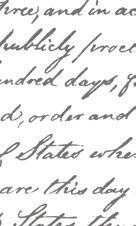 three, and in ac
publicly procl
undred days, f
d, order and
f States wher
are this day
States